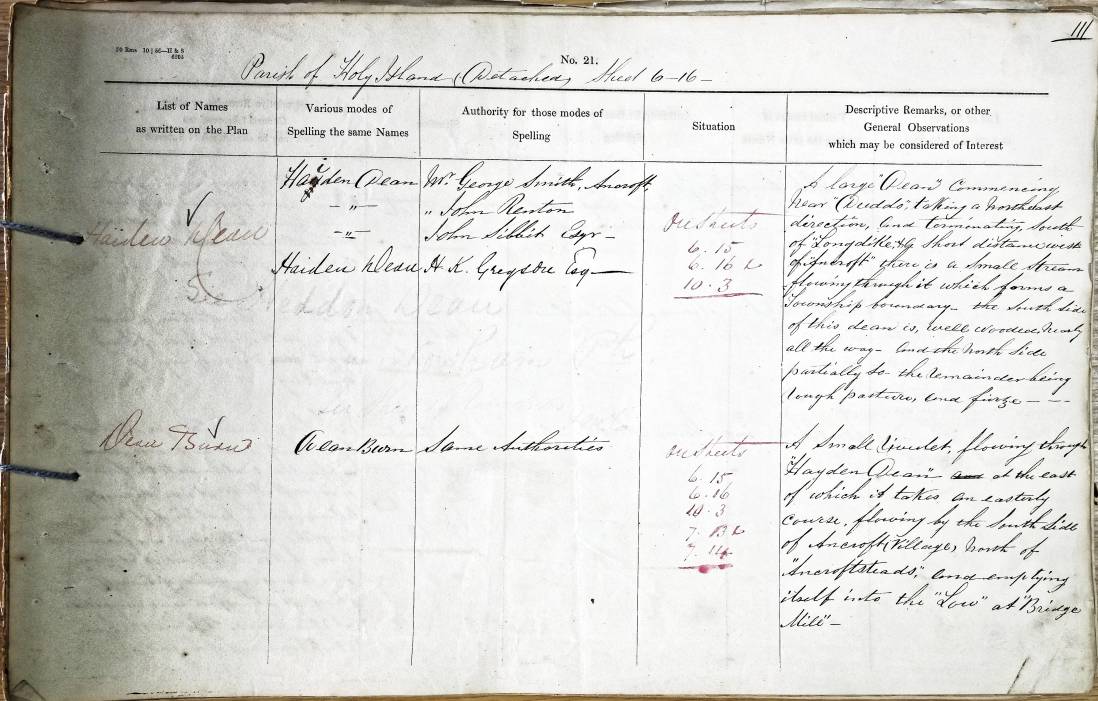 111
No. 21.
Parish of Holy Island (Detached) Sheet 6-16-
List of Names
as written on the Plan
Various modes of
Spelling the same Names
Authority for those modes of
Spelling
Situation
Descriptive Remarks, or other
General Observations
which may be considered of Interest
Haiden Dean
Hayden Dean
Haiden Dean
Mr. George Smith, Ancroft
" John Renton
John Sillbit Esqr-
H. K. Gregson Esq
On Sheets
6. 15
6. 16
10. 3
A large "Dean" Commencing
Near "Cudds", taking a Northeast
direction, and terminating South
of "Longdike, & a Short distance west
of "Ancroft" there is a Small Stream
flowing through it which forms a
Township boundary- the South Side
of this dean is, well wooded, nearly
all the way- and the North Side
partially so- the remainder being
rough pasture, and furze - - -
Dean Burn
Dean Burn
Same Authorities
On Sheets
6. 15
6. 16
10. 3
7. 13
7. 14
A Small rivulet, flowing through
"Hayden Dean" and at the east
of which it takes an easterly
course, flowing by the South Side
of Ancroft (Village) North of
"Ancroftsteads", and emptying
itself into the "Low" at "Bridge
Mill"-